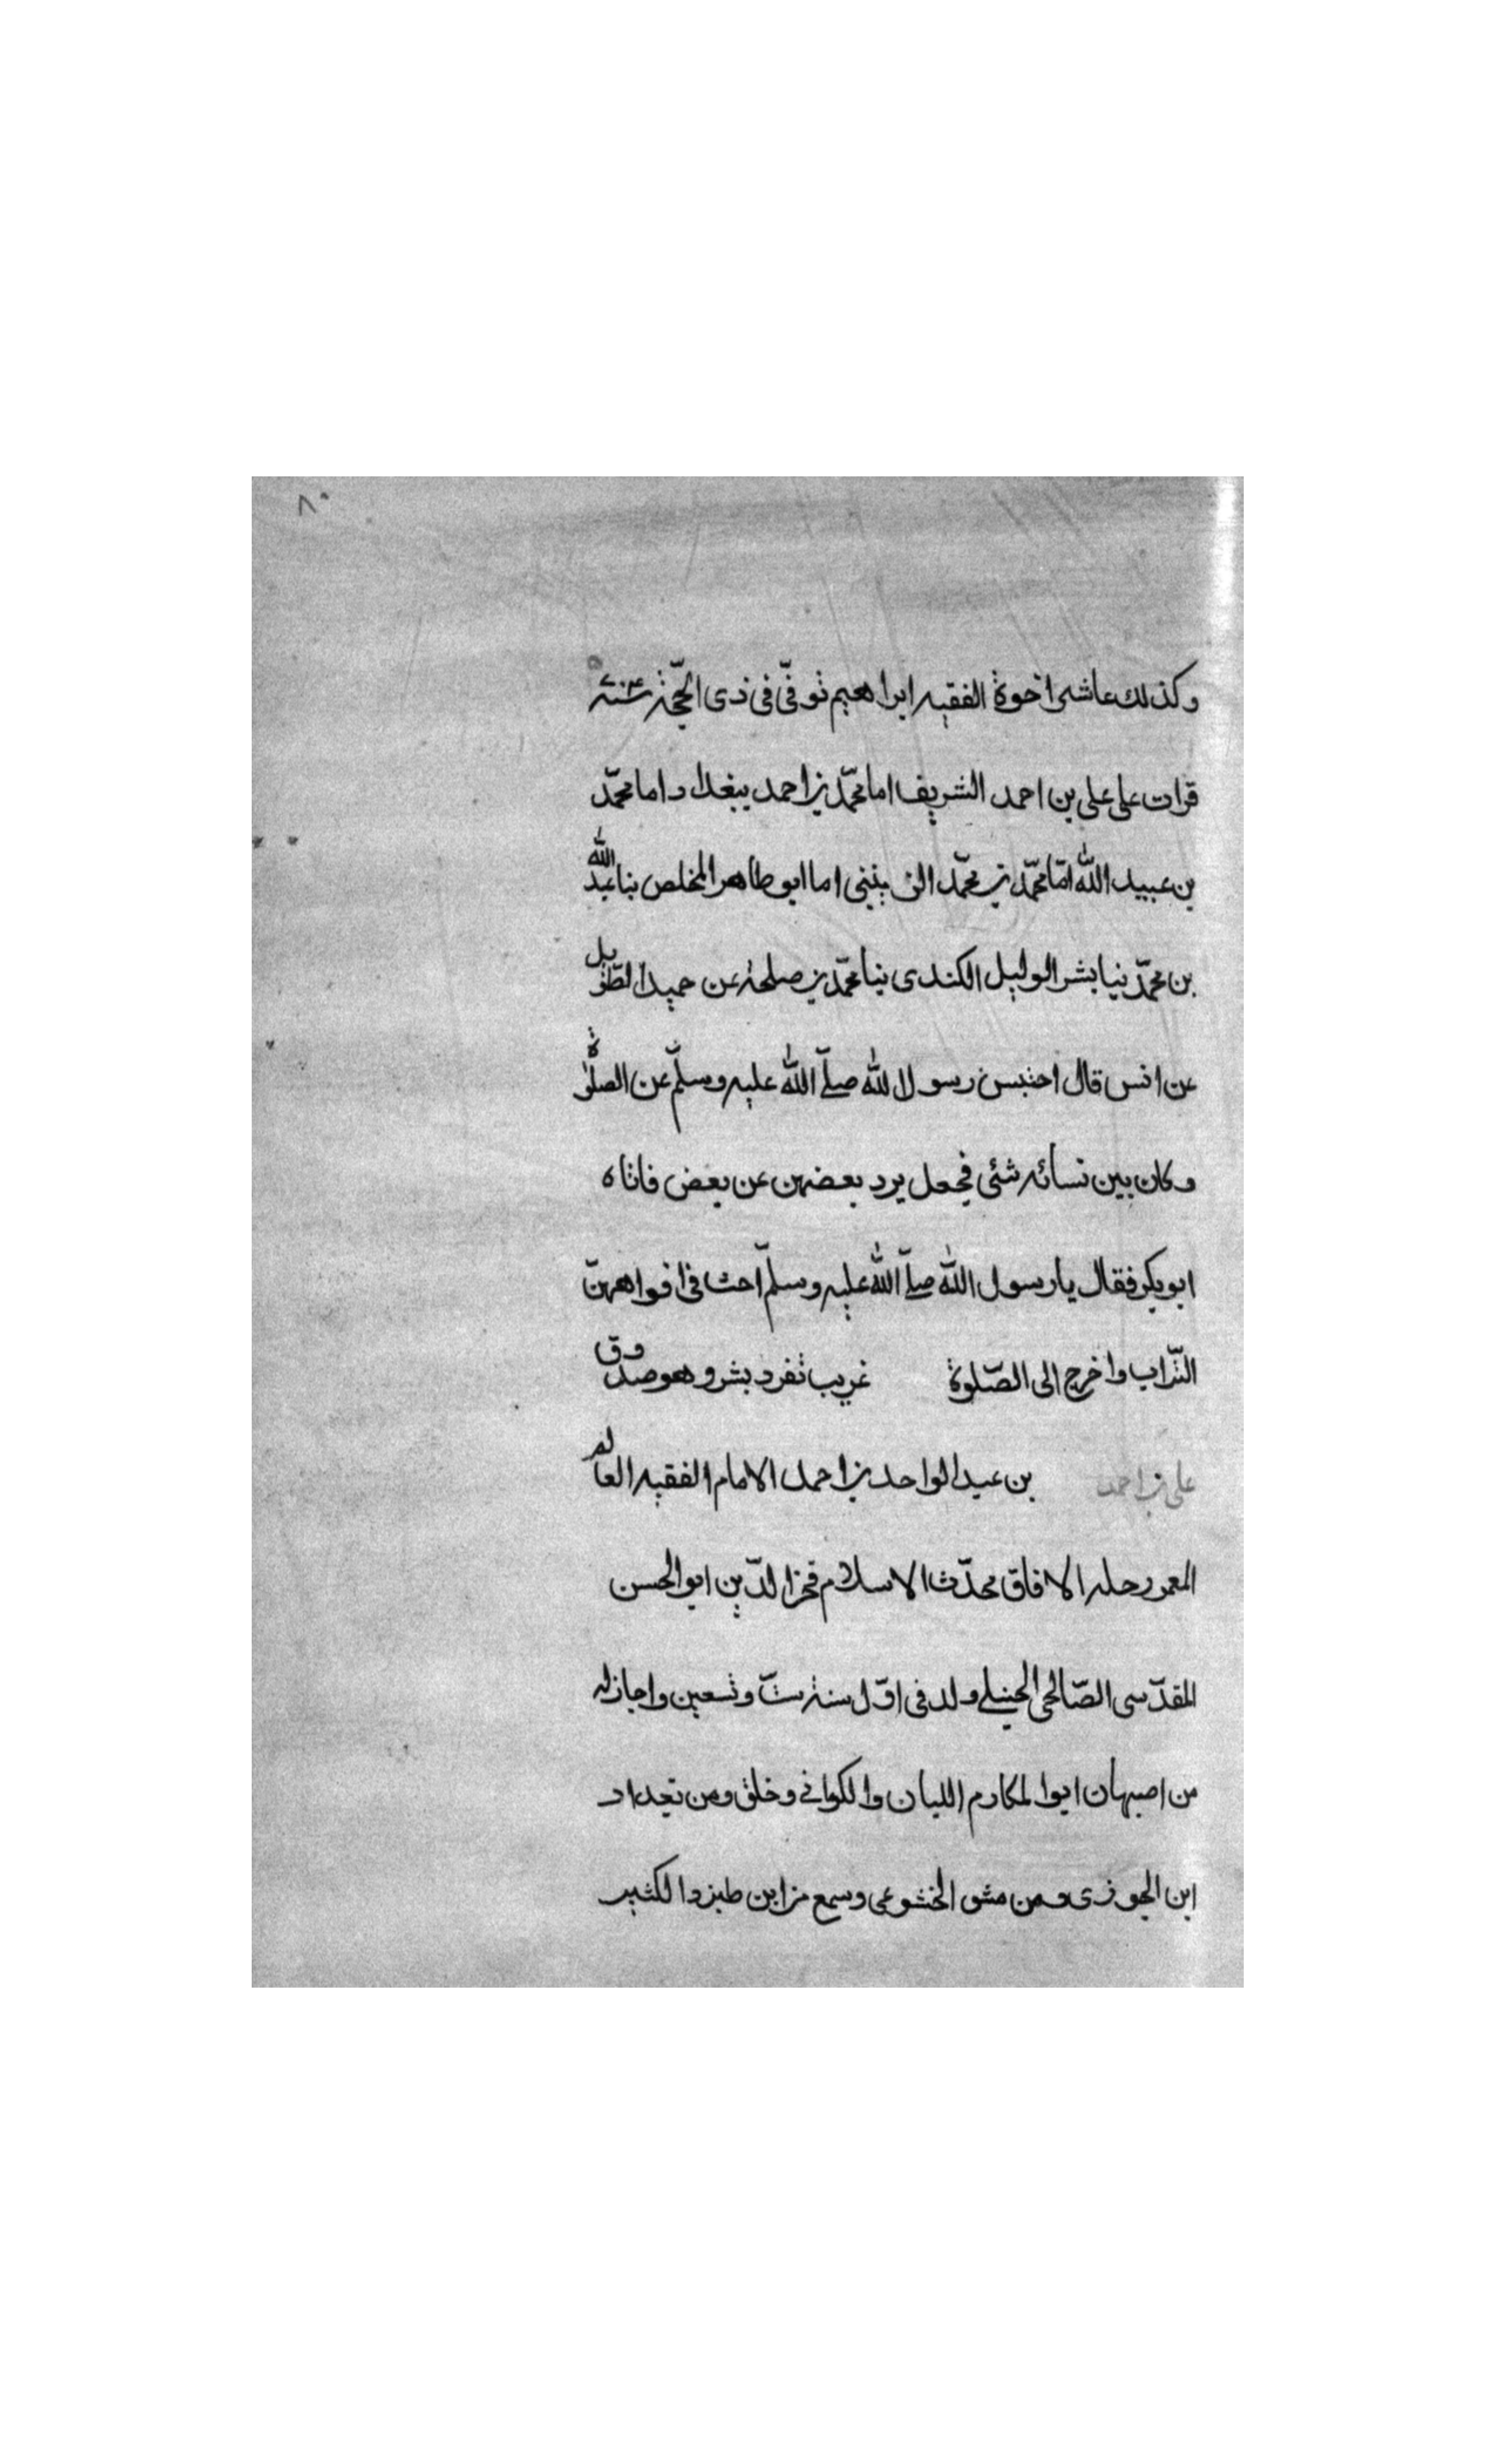 ٨٠
وكذلك عاش اخوة الفقيه ابراهيم توفّى فى ذى الحجّة سنة
قرات على على بن احمد الشريف اما محمّد بن احمد ببغداد اما محمّد
بن عبيد الله امّا محمّد بن محمّد الزينبى اما ابو طاهر المخلص بنا عبد الله
بن محمّد بنيا بشر الوليل الكندى بنيا محمّد بن صلحة عن حميد الطّويل
عن انس قال احتبس رسول الله صلّى الله عليه وسلّم عن الصلوٰة
وكان بين نسائه شئى فجعل يرد بعضهن عن بعض فاتاه
ابو بكر فقال يا رسول الله صلّى الله عليه وسلّم احث فى افواههنّ
التّراب واخرج الى الصّلوة غريب تفرد بشر وهو صدوق
على بن احمد بن عبد الواحد بن احمد الامام الفقيه العالم
المعمر رحله الافاق محدّث الاسلام فخر الدّين ابو الحسن
المقدّسى الصّالحى الحنبلے ولد فى اوّل سنة ستّ وتسعين واجاز له
من اصبهان ابو المكارم اللبان والكرانى وخلق ومن بغداد
ابن الجوزى ومن مشق الخشوعى وسمع من ابن طبزد الكثير